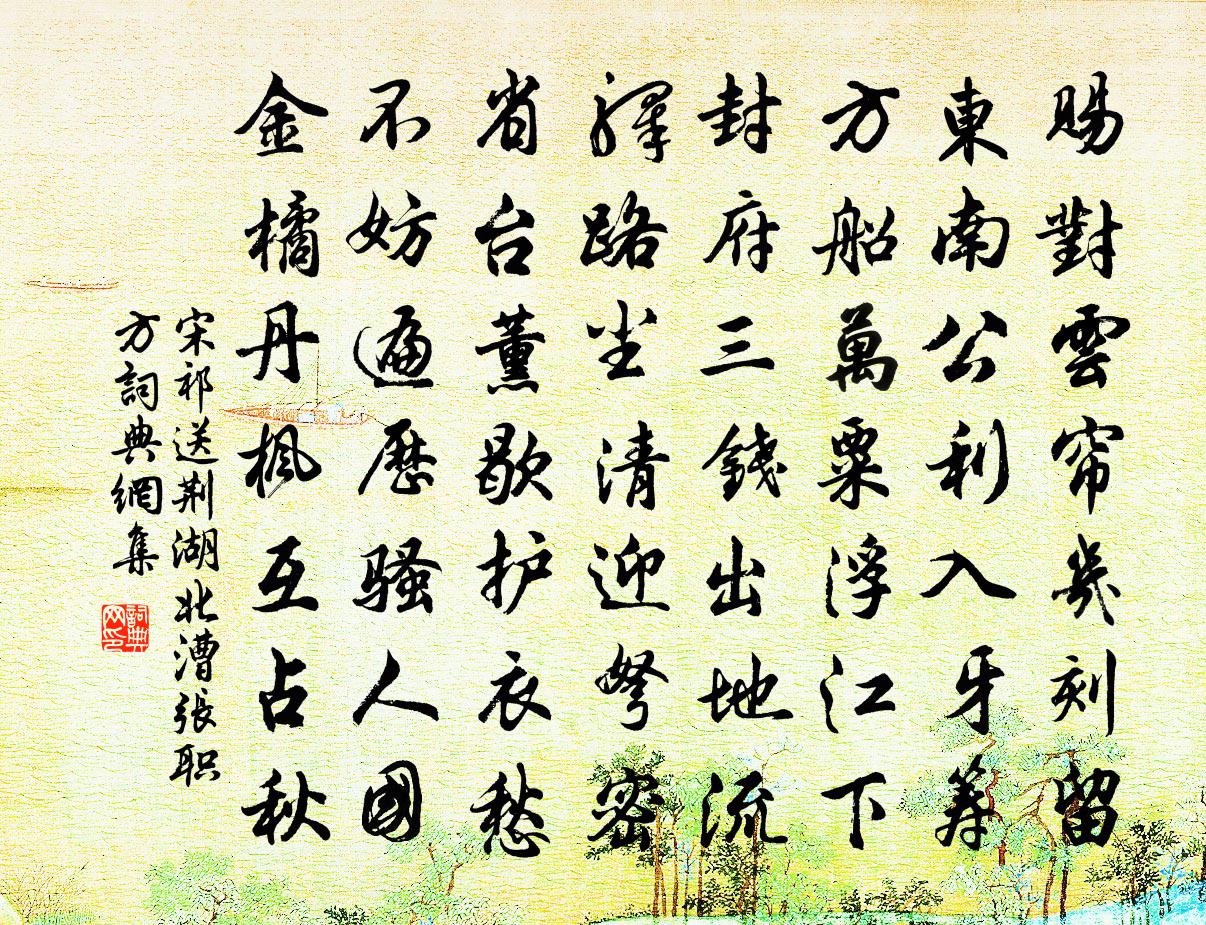 賜對雲帘幾刻留
東南公利入牙筹
方船萬粟浮江下
封府三錢出地流
驛路尘清迎弩密
省台薰歇护衣愁
不妨遍歷騷人國
金橘丹楓互占秋
宋祁送荆湖北漕張职
方詞典網集
詞典网印